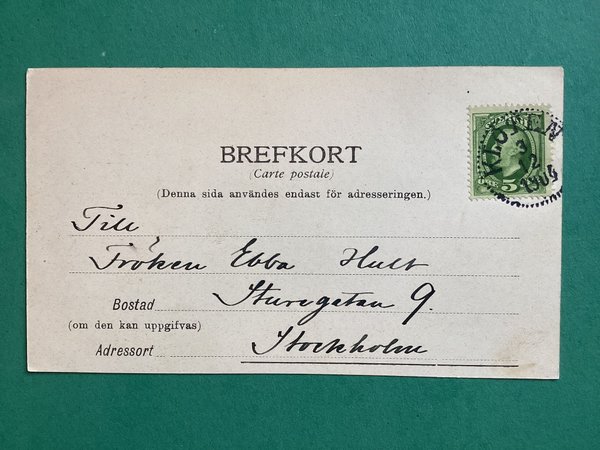 BREFKORT
(Carte postale)
(Denna sida användes endast för adresseringen.)
Till
Fröken Ebba Hult
Bostad Sturegatan 9.
(om den kan uppgifvas)
Adressort Stockholm
KLOTEN
3
2
1904
5